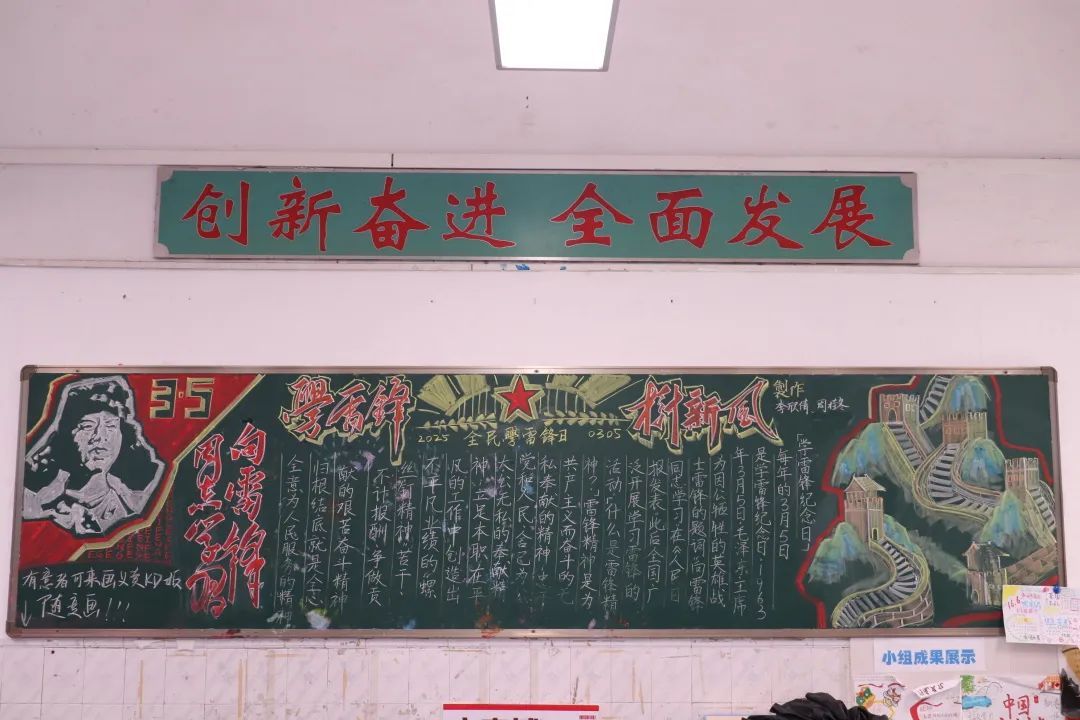 创新奋进 全面发展
3·5
向雷锋
同志学习
學雷锋
樹新风
2025 全民學雷锋日 0305
製作
李欣倩
「学雷锋纪念日」
每年的3月5日
是学雷锋纪念日。1963
年3月5日毛泽东主席
为因公牺牲的英雄战
士雷锋的题词“向雷锋
同志学习”在《人民日
报》发表。此后全国广
泛开展学习雷锋的
活动。「什么是雷锋精
神?」雷锋精神是为
共产主义而奋斗的无
私奉献的精神;
党和人民
大公无私的奉献精
神;立足本职、在平
风的工作中创造出
不平凡业绩的“螺
丝钉精神”。苦干、
不计报酬、争做贡
献的艰苦奋斗精神
归根结底就是全心
全意为人民服务的精神
随意画!!!
小组成果展示
中国